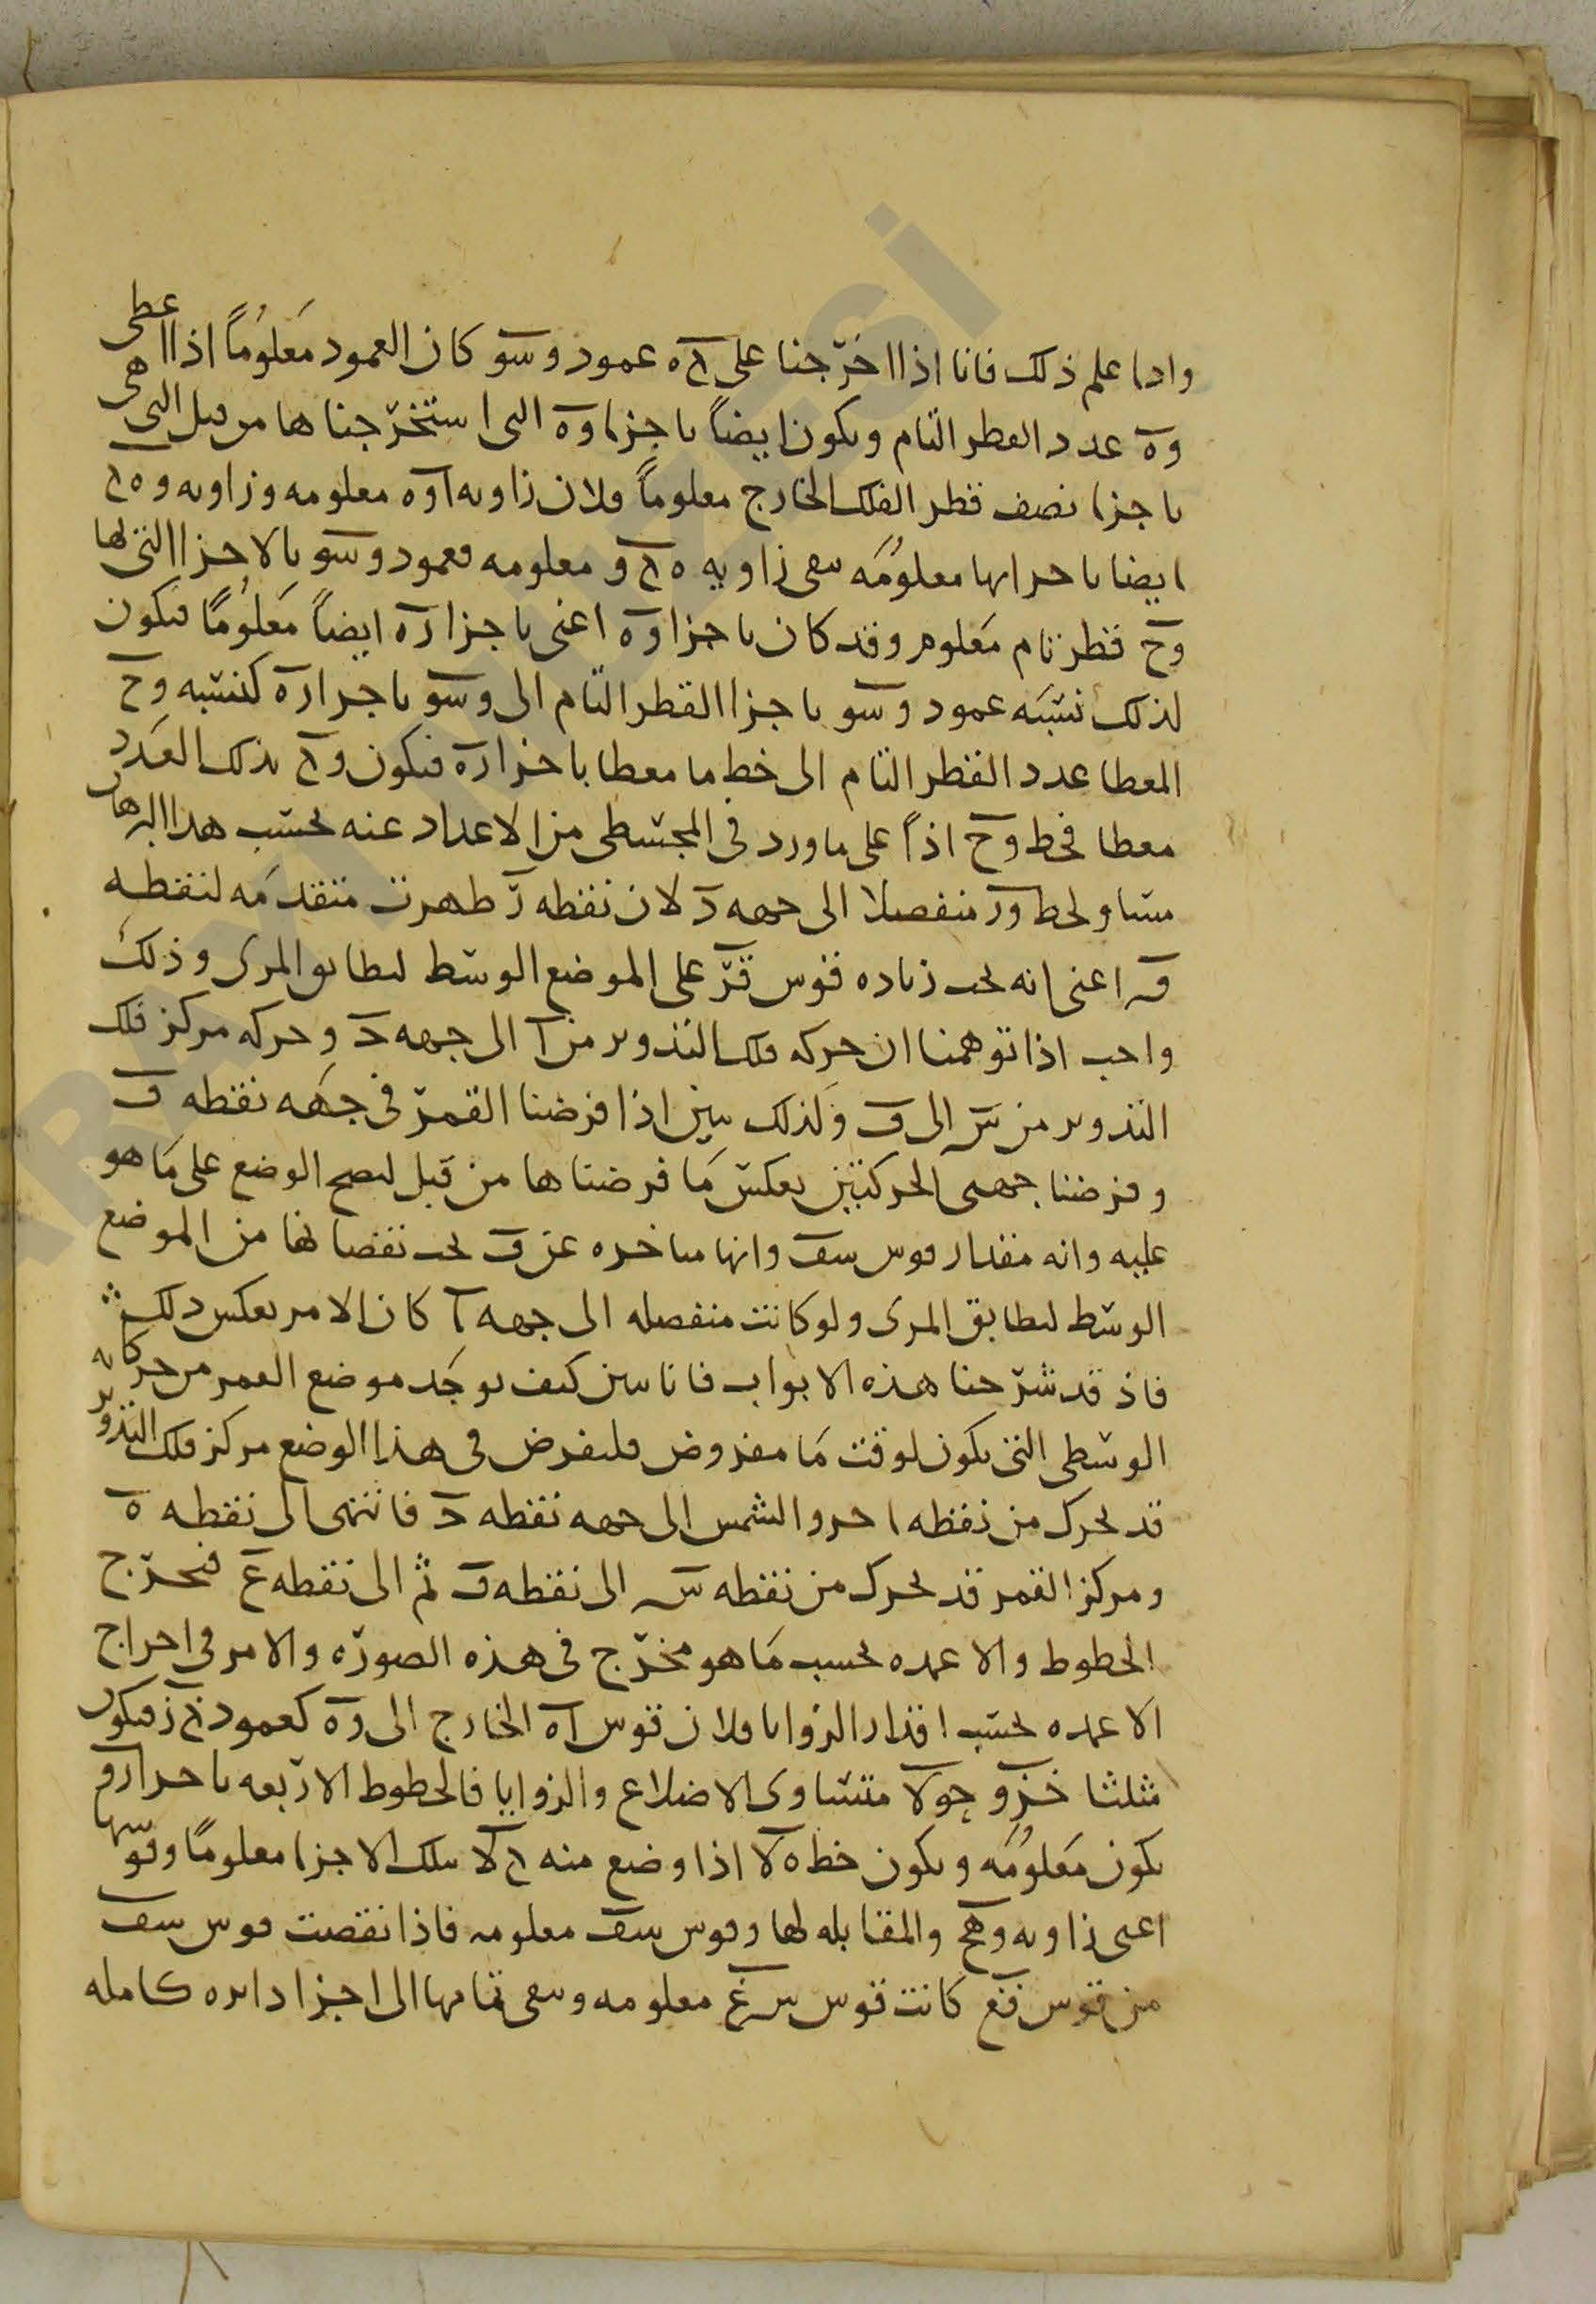 واذا علم ذلك فانا اذا اخرجنا على ح ه عمود و سو كان العمود معلوما اذا اعطى
و ه عدد القطر التام ويكون ايضا باجزا و ه التى استخرجناها من قبل التى هى
باجزا نصف قطر الفلك الخارج معلوما ولان زاويه ا و ه معلومه وزاويه و ه ح
ايضا باجزائها معلومه يبقى زاويه ه ح و معلومه فعمود و سو بالاجزا التى لها
و ح قطر تام معلوم وقد كان باجزا و ه اعنى باجزا ر ه ايضا معلوما فيكون
لذلك نسبه عمود و سو باجزا القطر التام الى و سو باجزا ر ه كنسبه و ح
المعطا عدد القطر التام الى خط ما معطا باجزا ر ه فيكون و ح بذلك العدد
معطا فخط و ح اذا على ما ورد فى المجسطى من الاعداد عنه بحسب هذا البرهان
مساو لخط و ر منفصلا الى جهه د لان نقطه ر ظهرت متقدمه لنقطه
ق اعنى انه يجب زياده قوس ق ر على الموضع الوسط ليطابق المرى وذلك
واجب اذا توهمنا ان حركه فلك التدوير من ا الى جهه د وحركه مركز فلك
التدوير من س الى ف وكذلك يبين اذا فرضنا القمر فى جهه نقطه ف
وفرضنا جهتى الحركتين بعكس ما فرضناها من قبل ليصح الوضع على ما هو
عليه وانه مقدار قوس سف وانها متاخره عن ف يجب نقصانها من الموضع
الوسط ليطابق المرى ولو كانت منفصله الى جهه ا كان الامر بعكس ذلك
فاذ قد شرحنا هذه الابواب فانا نبين كيف يوجد موضع القمر من حركاته
الوسطى التى يكون لوقت ما مفروض فليفرض فى هذا الوضع مركز فلك التدوير
قد تحرك من نقطه ا حرو الشمس الى جهه نقطه د فانتهى الى نقطه ه
ومركز القمر قد تحرك من نقطه س الى نقطه ف ثم الى نقطه ع فنخرج
الخطوط والاعمده بحسب ما هو مخرج فى هذه الصوره والامر فى اخراج
الاعمده بحسب اقدار الزوايا ولان قوس ا ه الخارج الى و ه كعمود ح ز فيكون
مثلثا خ ز و ح و لا متساوى الاضلاع والزوايا فالخطوط الاربعه باجزا ر و
يكون معلومه ويكون خط ه لا اذا وضع منه ح لا بتلك الاجزا معلوما وقوسها
اعنى زاويه و ه ح والمقابله لها وقوس سف معلومه فاذا نقصت قوس سف
من قوس فع كانت قوس س ع معلومه وبقى تمامها الى اجزا دايره كامله